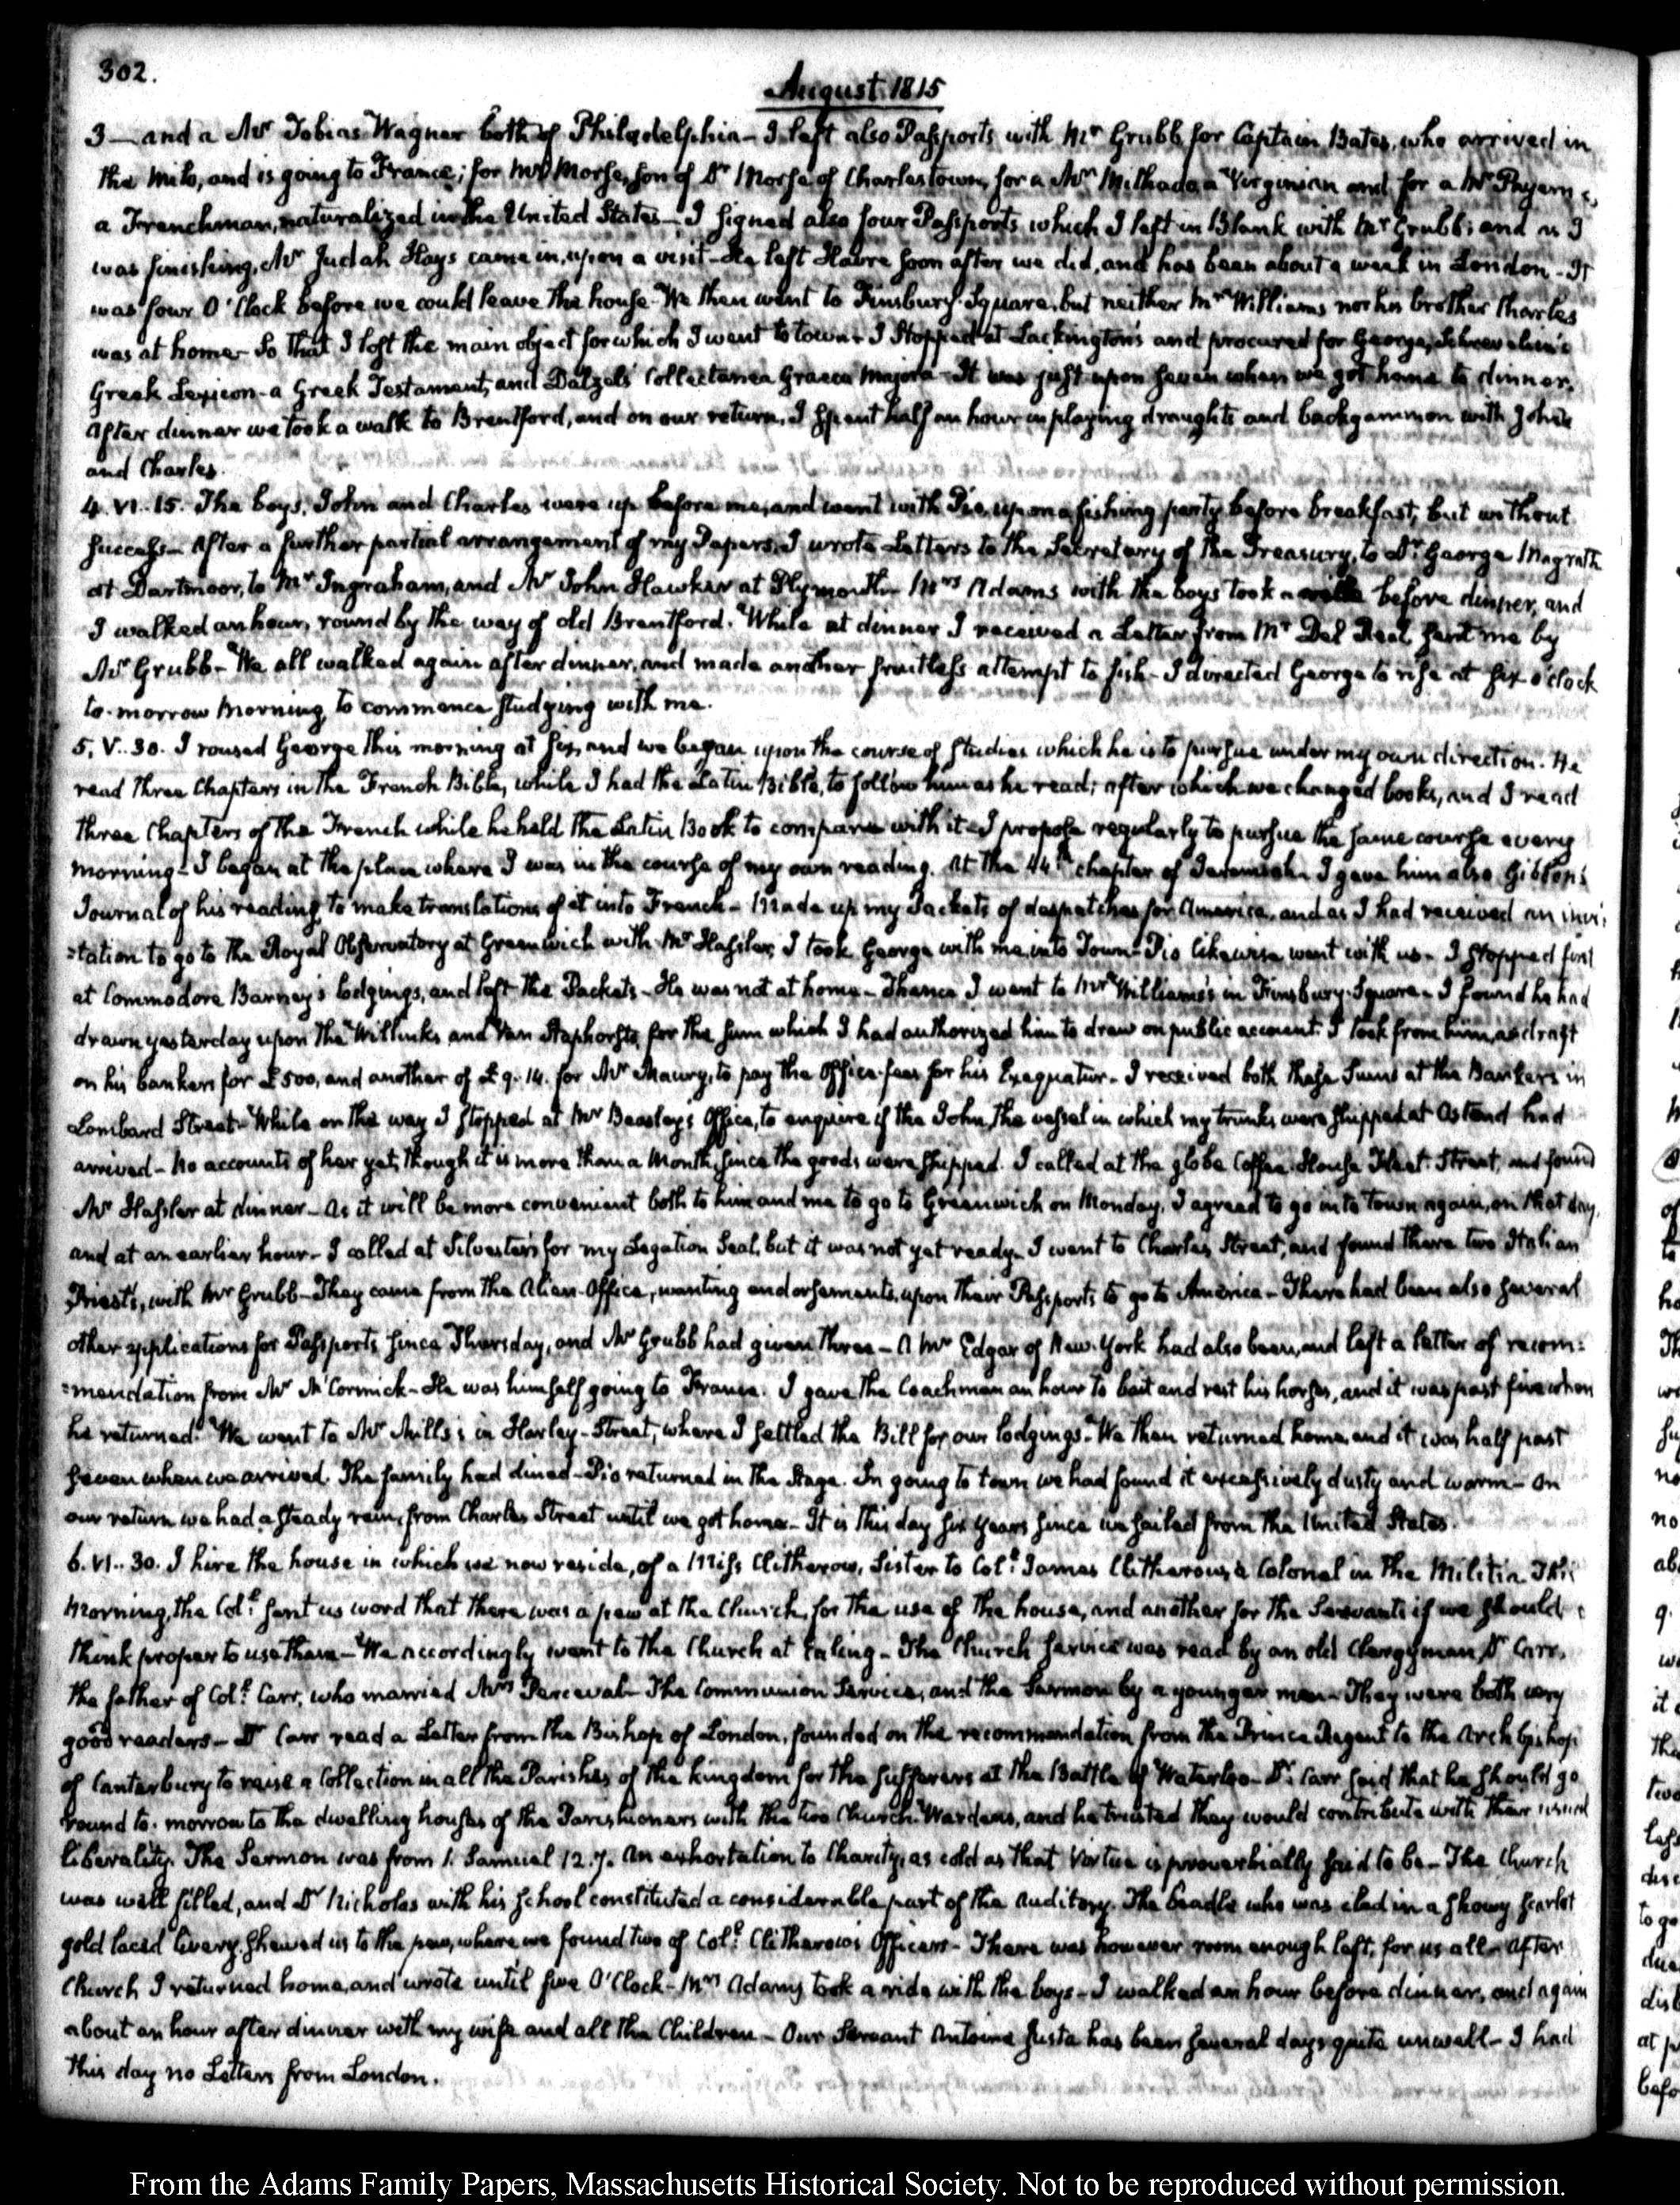 302.
August 1815
3 — and a Mr Tobias Wagner both of Philadelphia — I left also Passports with Mr Grubb for Captain Bates, who arrived in
the Milo, and is going to France; for Mr Morse, son of Dr Morse of Charlestown, for a Mr Milhado, a Virginian and for a Mr
a Frenchman, naturalized in the United States — I signed also four Passports which I left in Blank with Mr Grubb; and as I
was finishing, Mr Judah Hays came in, upon a visit — He left Havre soon after we did, and has been about a week in London — It
was four O'Clock before we could leave the house — We then went to Finsbury Square, but neither Mr Williams nor his brother Charles
was at home — So that I lost the main object for which I went to town — I stopped at Lackington's and procured for George,
Greek Lexicon — a Greek Testament, and Dalzel's Collectanea Graeca Majora — It was just upon seven when we got home to dinner.
After dinner we took a walk to Brentford, and on our return, I spent half an hour in playing draughts and backgammon with John
and Charles.
4. VI. 15. The boys, John and Charles were up before me, and went with Pio, upon a fishing party before breakfast, but without
success — After a further partial arrangement of my Papers, I wrote Letters to the Secretary of the Treasury, to Dr George Magrath
at Dartmoor, to Mr Ingraham, and Mr John Hawker at Plymouth — Mrs Adams with the boys took a before dinner, and
I walked an hour, round by the way of old Brentford. While at dinner I received a Letter from Mr Del Real sent me by
Mr Grubb — We all walked again after dinner, and made another fruitless attempt to fish — I directed George to rise at six o'clock
to-morrow Morning, to commence studying with me.
5. V. 30. I roused George this morning at six, and we began upon the course of studies which he is to pursue under my own direction. He
read three Chapters in the French Bible, while I had the Latin Bible, to follow him as he read; after which we changed books, and I read
three Chapters of the French while he held the Latin Book to compare with it — I propose regularly to pursue the same course every
morning — I began at the place where I was in the course of my own reading. At the 44th chapter of Jeremiah. I gave him also Gibbon's
Journal of his reading, to make translations of it into French — Made up my Packets of despatches for America, and as I had received an invi=
=tation to go to the Royal Observatory at Greenwich with Mr Hassler, I took George with me into Town — Pio likewise went with us — I stopped first
at Commodore Barney's lodgings, and left the Packets — He was not at home — Thence I went to Mr Williams's in Finsbury Square — I found he had
drawn yesterday upon the Willinks and Van Staphorsts, for the sum which I had authorized him to draw on public account. I took from him, a draft
on his bankers for £500, and another of £9. 14. for Mr Maury, to pay the Office fees for his Exequatur — I received both these Sums at the Bankers in
Lombard Street — While on the way I stopped at Mr Beasley's Office, to enquire if the John, the vessel in which my trunks were shipped at Ostend had
arrived — No accounts of her yet, though it is more than a Month, since the goods were shipped. I called at the globe Coffee House Fleet Street, and found
Mr Hassler at dinner — As it will be more convenient both to him and me to go to Greenwich on Monday, I agreed to go into town again, on that day,
and at an earlier hour — I called at Silvester's for my Legation Seal, but it was not yet ready — I went to Charles Street, and found there two Italian
Priests, with Mr Grubb — They came from the Alien Office, wanting endorsements, upon their Passports to go to America — There had been also several
other applications for Passports since Thursday, and Mr Grubb had given three — A Mr Edgar of New York had also been, and left a letter of recom=
=mendation from Mr McCormick — He was himself going to France. I gave the Coachman an hour to bait and rest his horses, and it was past five when
he returned. We went to Mr Mills's in Harley-Street, where I settled the Bill for our lodgings — We then returned home, and it was half past
seven when we arrived. The family had dined — Pio returned in the Stage. In going to town we had found it excessively dusty and warm — On
our return we had a steady rain, from Charles Street until we got home — It is this day six years since we sailed from the United States.
6. VI. 30. I hire the house in which we now reside, of a Miss Clitherow, Sister to Coll. James Clitherow, a Colonel in the Militia. This
Morning, the Coll. sent us word that there was a pew at the Church, for the use of the house, and another for the Servants if we should
think proper to use them — We accordingly went to the Church at Ealing — The Church Service was read by an old Clergyman Dr Carr,
the father of Coll. Carr, who married Mrs Perceval — The Communion Service, and the Sermon by a younger man — They were both very
good readers — Dr Carr read a Letter from the Bishop of London, founded on the recommendation from the Prince Regent to the Archbishop
of Canterbury to raise a Collection in all the Parishes of the kingdom for the sufferers at the Battle of Waterloo — Dr Carr said that he should go
round to-morrow to the dwelling houses of the Parishioners with the two Church-Wardens, and he trusted they would contribute with their usual
liberality. The Sermon was from 1. Samuel 12. 7. An exhortation to Charity, as cold as that Virtue is proverbially said to be — The Church
was well filled, and Dr Nicholas with his school constituted a considerable part of the auditory. The beadle who was clad in a showy scarlet
gold laced livery, shewed us to the pew, where we found two of Coll. Clitherow's Officers — There was however room enough left, for us all — After
Church I returned home, and wrote until five O'Clock — Mrs Adams took a ride with the boys — I walked an hour before dinner, and again
about an hour after dinner with my wife and all the Children — Our Servant Antoine Justa has been several days quite unwell — I had
this day no Letters from London.
From the Adams Family Papers, Massachusetts Historical Society. Not to be reproduced without permission.